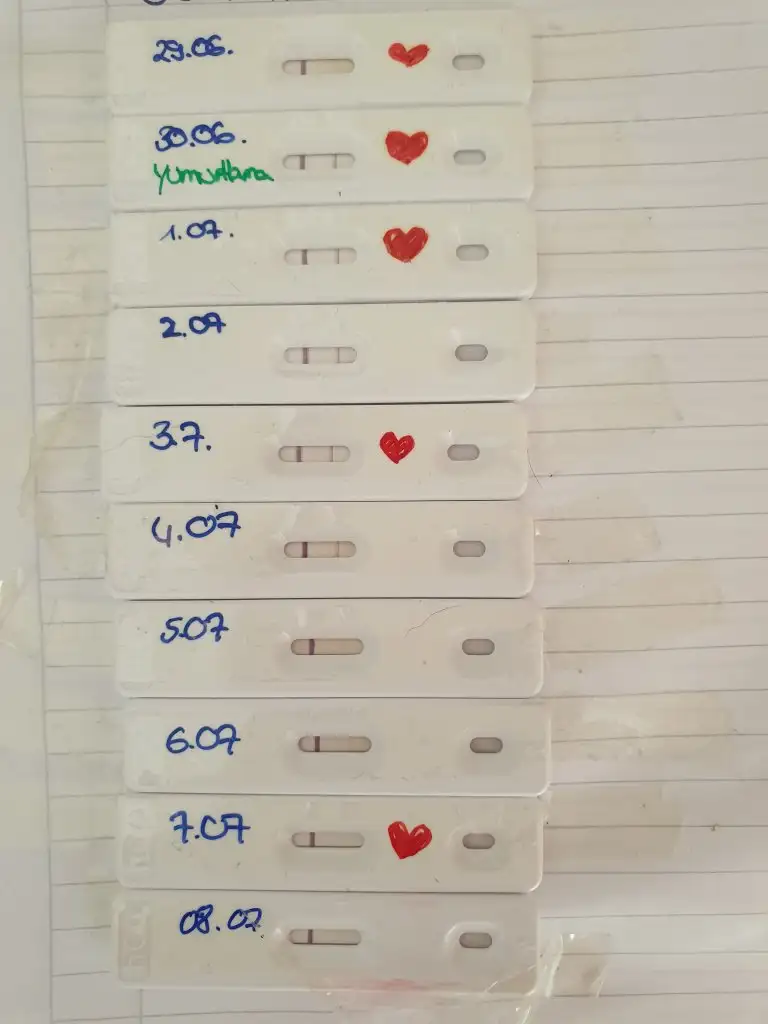 29.06.
30.06.
Yumurtlama
1.07.
2.07
3.7.
4.07
5.07
6.07
7.07
08.07.